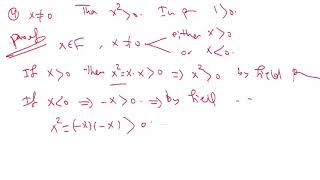 ④ x≠0 Then x²>0. In p 1>0.
Proof x∈F, x≠0 either x>0
or x<0.
If x>0 then x²=x·x>0 ⇒ x²>0 by field
If x<0 ⇒ -x>0 ⇒ by field - -
x²=(-x)(-x)>0.